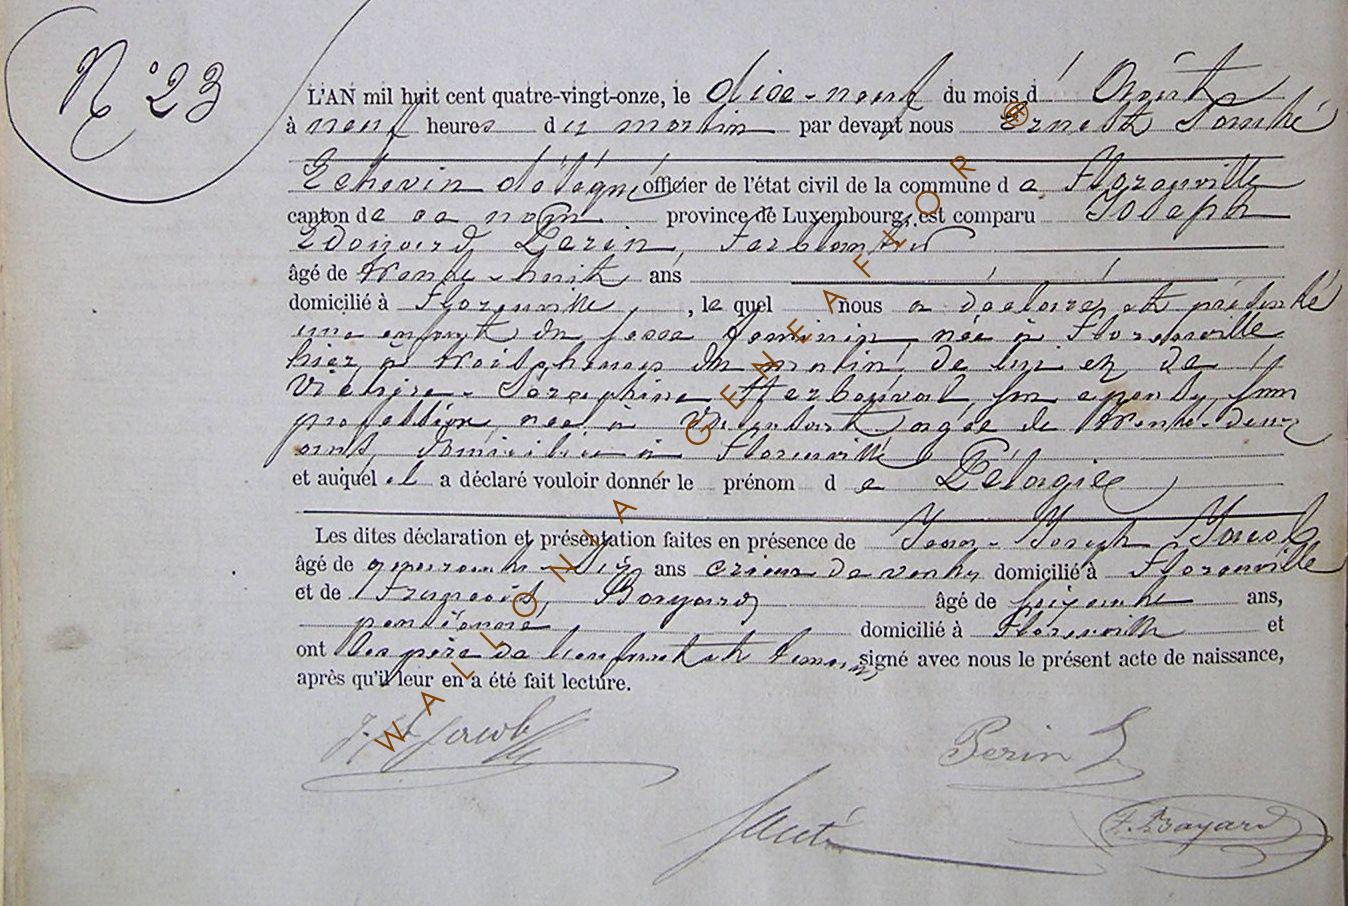 N° 23
L'AN mil huit cent quatre-vingt-onze, le dixe-neuf du mois d'Août
à neuf heures du matin par devant nous Ernest
Echevin délégué officier de l'état civil de la commune de Florenville
canton de ce nom province de Luxembourg, est comparu Joseph
Edouard Perin, Ferblantier
âgé de trente-huit ans
domicilié à Florenville, lequel nous a déclaré et présenté
une enfant du sexe féminin, née à Florenville
hier à trois heures du matin, de lui et de
Virginie-Séraphine Herbeuval, son épouse, sans
profession, née à âgée de trente-deux
ans, domiciliée à Florenville
et auquel il a déclaré vouloir donner le prénom de Pélagie
Les dites déclaration et présentation faites en présence de Jean-Joseph Jacob
âgé de ans crieur de ventes domicilié à Florenville
et de François Bayard âgé de soixante ans,
pensionné domicilié à Florenville et
ont les père de l'enfant et témoins signé avec nous le présent acte de naissance,
après qu'il leur en a été fait lecture.
J. J. Jacob
Perin E
F. Bayard
WALLONIA GENEAFLOR ®